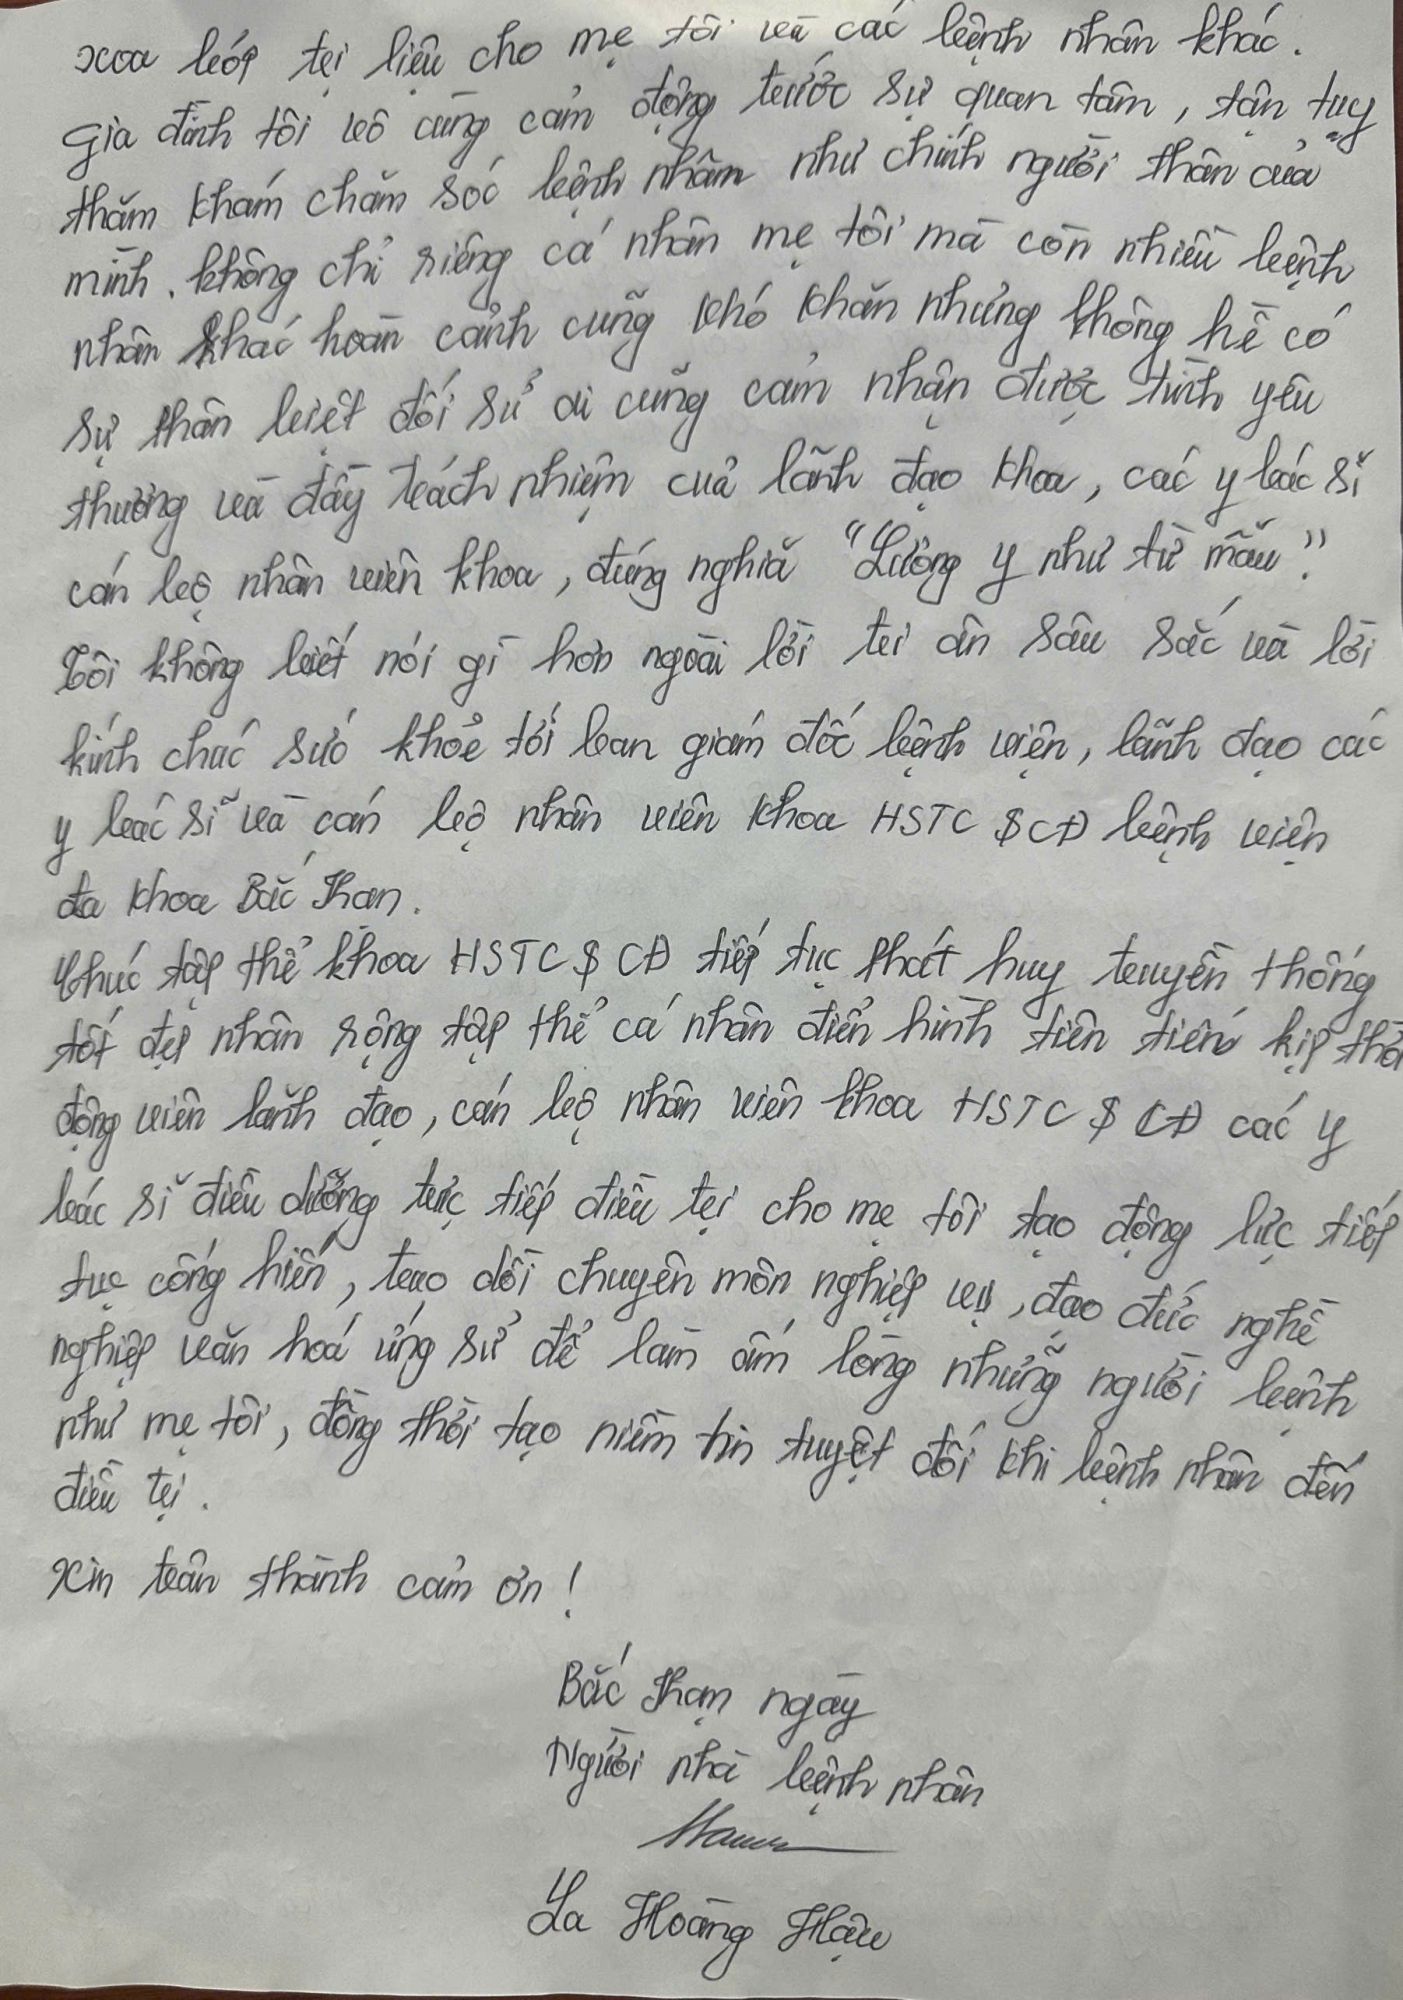 xoa bóp trị liệu cho mẹ tôi và các bệnh nhân khác.
Gia đình tôi vô cùng cảm động trước sự quan tâm, tận tụy
thăm khám chăm sóc bệnh nhân như chính người thân của
mình. không chỉ riêng cá nhân mẹ tôi mà còn nhiều bệnh
nhân khác hoàn cảnh cũng khó khăn nhưng không hề có
sự phân biệt đối sử ai cũng cảm nhận được tình yêu
thương và đầy trách nhiệm của lãnh đạo khoa, các y bác sĩ
cán bộ nhân viên khoa, đúng nghĩa "Lương y như từ mẫu".
Tôi không biết nói gì hơn ngoài lời tri ân sâu sắc và lời
kính chúc sức khỏe tới ban giám đốc bệnh viện, lãnh đạo các
y bác sĩ và cán bộ nhân viên khoa HSTC $ CĐ bệnh viện
đa khoa Bắc Kạn.
Chúc tập thể khoa HSTC $ CĐ tiếp tục phát huy truyền thống
tốt đẹp nhân rộng tập thể cá nhân điển hình tiên tiến kịp thời
động viên lãnh đạo, cán bộ nhân viên khoa HSTC $ CĐ các y
bác sĩ điều dưỡng trực tiếp điều trị cho mẹ tôi tạo động lực tiếp
tục cống hiến, trao dồi chuyên môn nghiệp vụ, đạo đức nghề
nghiệp văn hoá ứng sử để làm ấm lòng những người bệnh
như mẹ tôi, đồng thời tạo niềm tin tuyệt đối khi bệnh nhân đến
điều trị.
Xin trân thành cảm ơn!
Bắc Kạn ngày
Người nhà bệnh nhân
La Hoàng Hậu